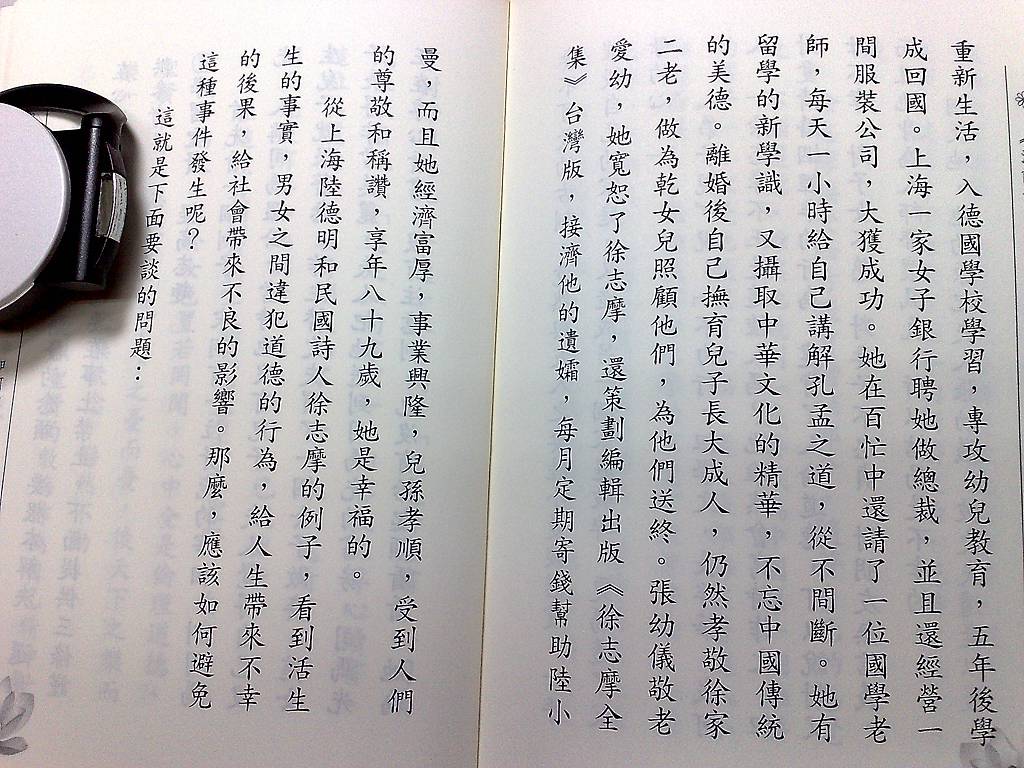 重新生活，入德國學校學習，專攻幼兒教育，五年後學
成回國。上海一家女子銀行聘她做總裁，並且還經營一
間服裝公司，大獲成功。她在百忙中還請了一位國學老
師，每天一小時給自己講解孔孟之道，從不間斷。她有
留學的新學識，又攝取中華文化的精華，不忘中國傳統
的美德。離婚後自己撫育兒子長大成人，仍然孝敬徐家
二老，做為乾女兒照顧他們，為他們送終。張幼儀敬老
愛幼，她寬恕了徐志摩，還策劃編輯出版《徐志摩全
集》台灣版，接濟他的遺孀，每月定期寄錢幫助陸小
曼，而且她經濟富厚，事業興隆，兒孫孝順，受到人們
的尊敬和稱讚，享年八十九歲，她是幸福的。
從上海陸德明和民國詩人徐志摩的例子，看到活生
生的事實，男女之間違犯道德的行為，給人生帶來不幸
的後果，給社會帶來不良的影響。那麼，應該如何避免
這種事件發生呢？
這就是下面要談的問題：